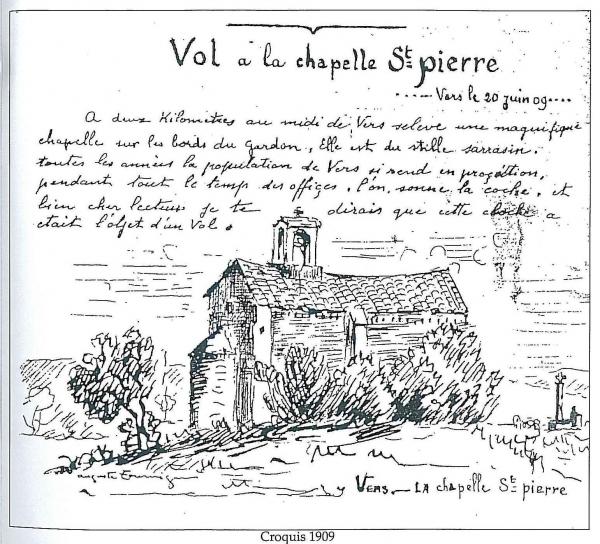 Vol à la chapelle St pierre
Vers le 20 juin 09
A deux Kilometres au midi de Vers seleve une maquifique
chapelle sur les bords du gardon, Elle est du stille sarrasin.
toutes les années la population de Vers si rend en
pendant tout le temps des offices, l'on sonne la coche, et
bien cher lecteur je te dirais que cette cloche a
etait l'objet d'un Vol.
auguste
Vers. LA chapelle St pierre
Croquis 1909